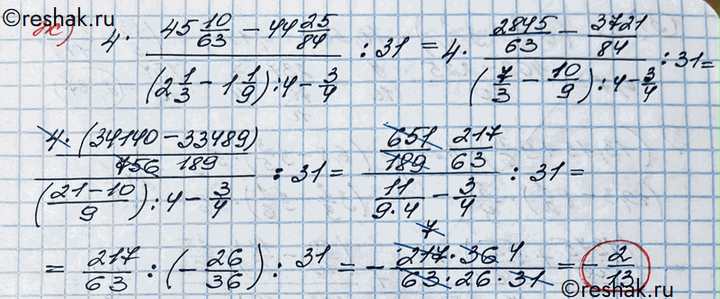 ©reshak.ru
ж) 4 · (45 10/63 − 44 25/84) / ((2 1/3 − 1 1/9) : 4 − 3/4) : 31 = 4 · (2845/63 − 3721/84) / ((7/3 − 10/9) : 4 − 3/4) : 31 =
(4 · (34140 − 33489) / 756 189) / (((21 − 10)/9) : 4 − 3/4) : 31 = (651/189 217/63) / (11/(9·4) − 3/4) : 31 =
= 217/63 : (− 26/36) : 31 = − (217 7 · 36 4) / (63 · 26 · 31) = − 2/13
reshak.ru